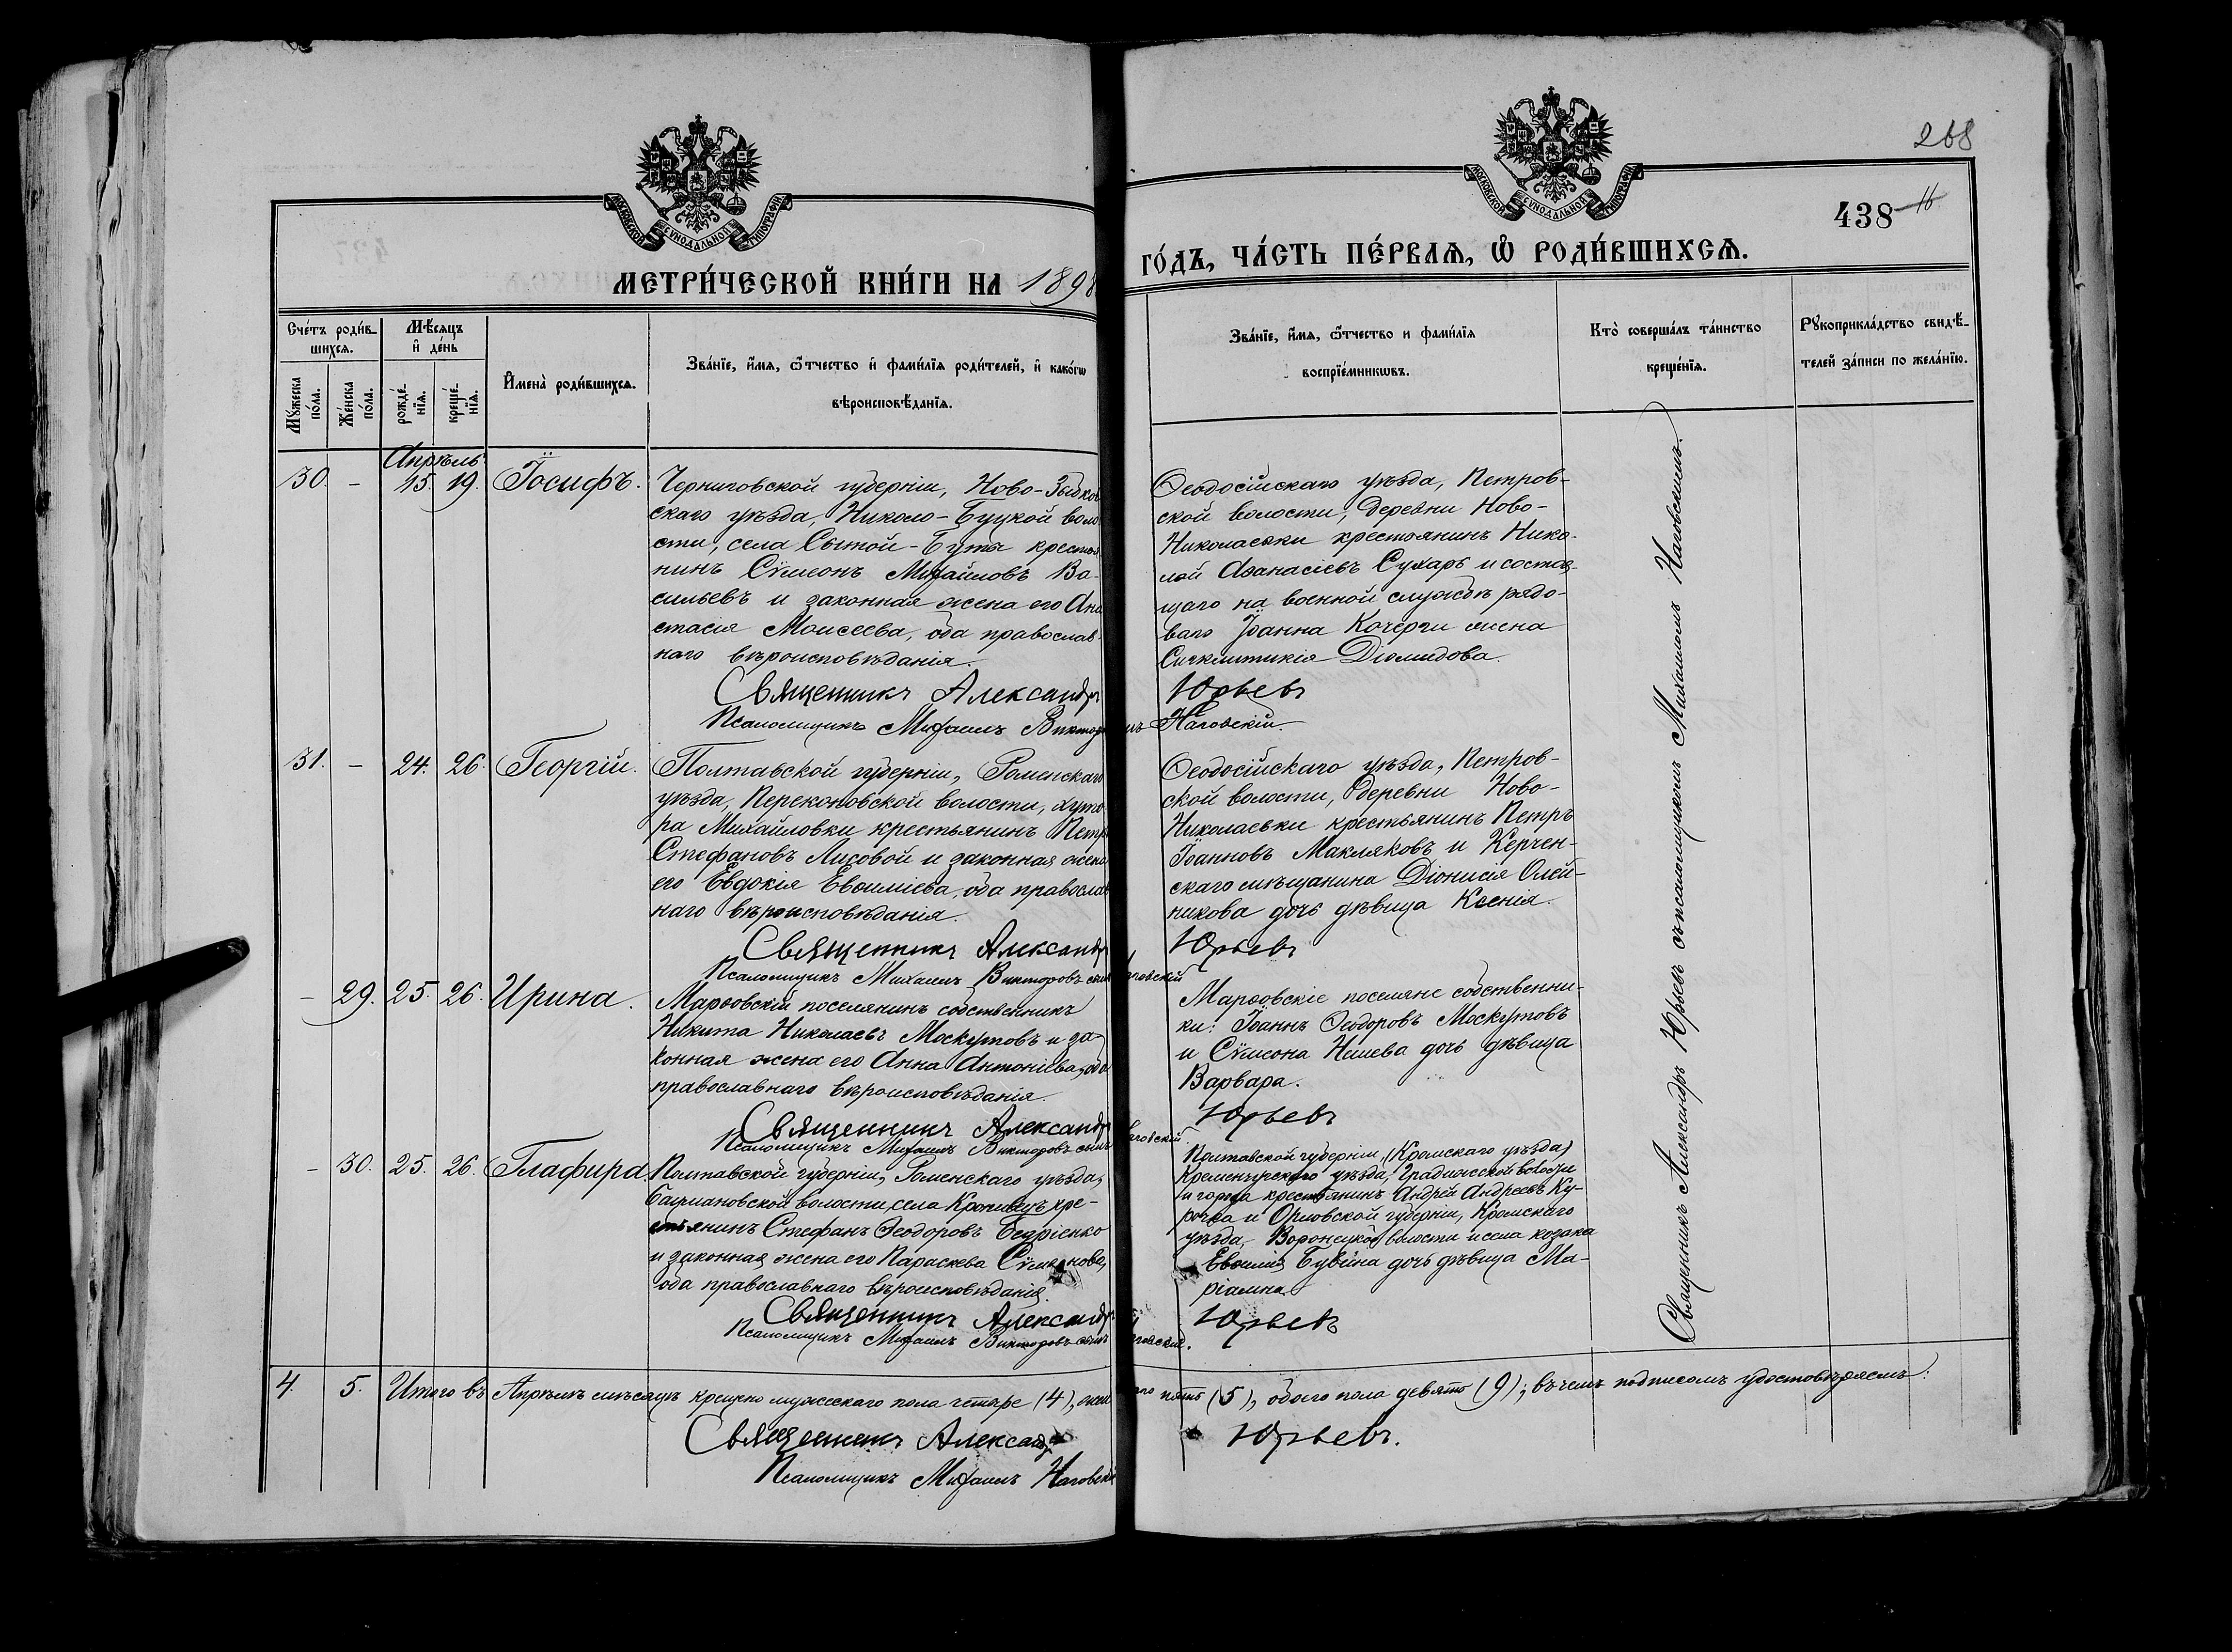 268
438
16
МОСКОВСКОЙ СѴНОДАЛЬНОЙ ТИПОГРАФІИ
МОСКОВСКОЙ СѴНОДАЛЬНОЙ ТИПОГРАФІИ
МЕТРИ́ЧЕСКОЙ КНИ́ГИ НА 1898
ГО́ДЪ, ЧА́СТЬ ПЕ́РВАѦ, Ѡ҆ РОДИ́ВШИХСѦ.
Сче́тъ роди́в-
шихсѧ.
Мꙋ́жеска
по́ла.
Же́нска
по́ла.
Мѣ́сѧцъ
и҆ де́нь
рожде́-
нїѧ.
креще́-
нїѧ.
И҆мена̀ роди́вшихсѧ.
Зва́нїе, и҆́мѧ, ѻ҆́тчество и҆ фами́лїѧ роди́телей, и҆ како́гѡ
вѣроисповѣ́данїѧ.
Зва́нїе, и҆́мѧ, ѻ҆́тчество и фами́лїѧ
воспрїе́мникѡвъ.
Кто̀ соверша́лъ та́инство
креще́нїѧ.
Рꙋкоприкла́дство свидѣ́-
телей за́писи по жела́нїю.
Апрѣль
30. - 15. 19. Іосифъ.
Черниговской губерніи, Ново-Зыбков
скаго уѣзда, Николо-Буцкой воло
сти, села Сытой-Буты крестья
нинъ Сѵмеонъ Михайловъ Ва-
сильевъ и законная жена его Ана
стасія Моисеева, оба православ-
наго вѣроисповѣданія.
Священникъ Александръ
Псаломщикъ Михаилъ Викторовъ
Ѳеодосійскаго уѣзда, Петров-
ской волости, деревни Ново-
Николаевки крестьянинъ Нико-
лай Аѳанасіевъ Сухарь и состоя-
щаго на военной службѣ рядо-
ваго Іоанна Кочерги жена
Сигклитикія Діомидова.
Юрьевъ
Наговскій.
31. - 24. 26. Георгій.
Полтавской губерніи, Роменскаго
уѣзда, Перекоповской волости, хуто
ра Михайловки крестьянинъ Петръ
Стефановъ Лисовой и законная жена
его Евдокія Евѳиміева, оба православ
наго вѣроисповѣданія.
Священникъ Александръ
Псаломщикъ Михаилъ Викторовъ сынъ Наговскій
Ѳеодосійскаго уѣзда, Петров-
ской волости, деревни Ново-
Николаевки крестьянинъ Петръ
Іоанновъ Макляковъ и Керчен-
скаго мѣщанина Діонисія Олей-
никова дочь дѣвица Ксенія.
Юрьевъ
- 29. 25. 26. Ирина.
Марѳовскій поселянинъ собственникъ
Никита Николаевъ Москутовъ и за-
конная жена его Анна Антоніева, оба
православнаго вѣроисповѣданія.
Священникъ Александръ
Псаломщикъ Михаилъ Викторовъ сынъ Наговскій.
Марѳовскіе поселяне собственни-
ки: Іоаннъ Ѳеодоровъ Москутовъ
и Сѵмеона Нешева дочь дѣвица
Варвара.
Юрьевъ
- 30. 25. 26. Глафира.
Полтавской губерніи, Роменскаго уѣзда,
волости, села кре-
стьянинъ Стефанъ Ѳеодоровъ
и законная жена его Параскева Сѵмеонова,
оба православнаго вѣроисповѣданія.
Священникъ Александръ
Псаломщикъ Михаилъ Викторовъ сынъ Наговскій.
Полтавской губерніи, (Кромскаго уѣзда)
Кременчугскаго уѣзда, Градижской волости
и города крестьянинъ Андрей Андреевъ Ку-
рочка и Орловской губерніи, Кромскаго
уѣзда, волости и села козака
Евѳимія дочь дѣвица Ма-
ріамна.
Юрьевъ
Священникъ Александръ Юрьевъ съ псаломщикомъ Михаиломъ Наговскимъ.
4. 5. Итого въ Апрѣлѣ мѣсяцѣ крещено мужескаго пола четыре (4), женскаго пять (5), обоего пола девять (9); въ чемъ подписомъ удостовѣряемъ:
Священникъ Александръ Юрьевъ.
Псаломщикъ Михаилъ Наговскій